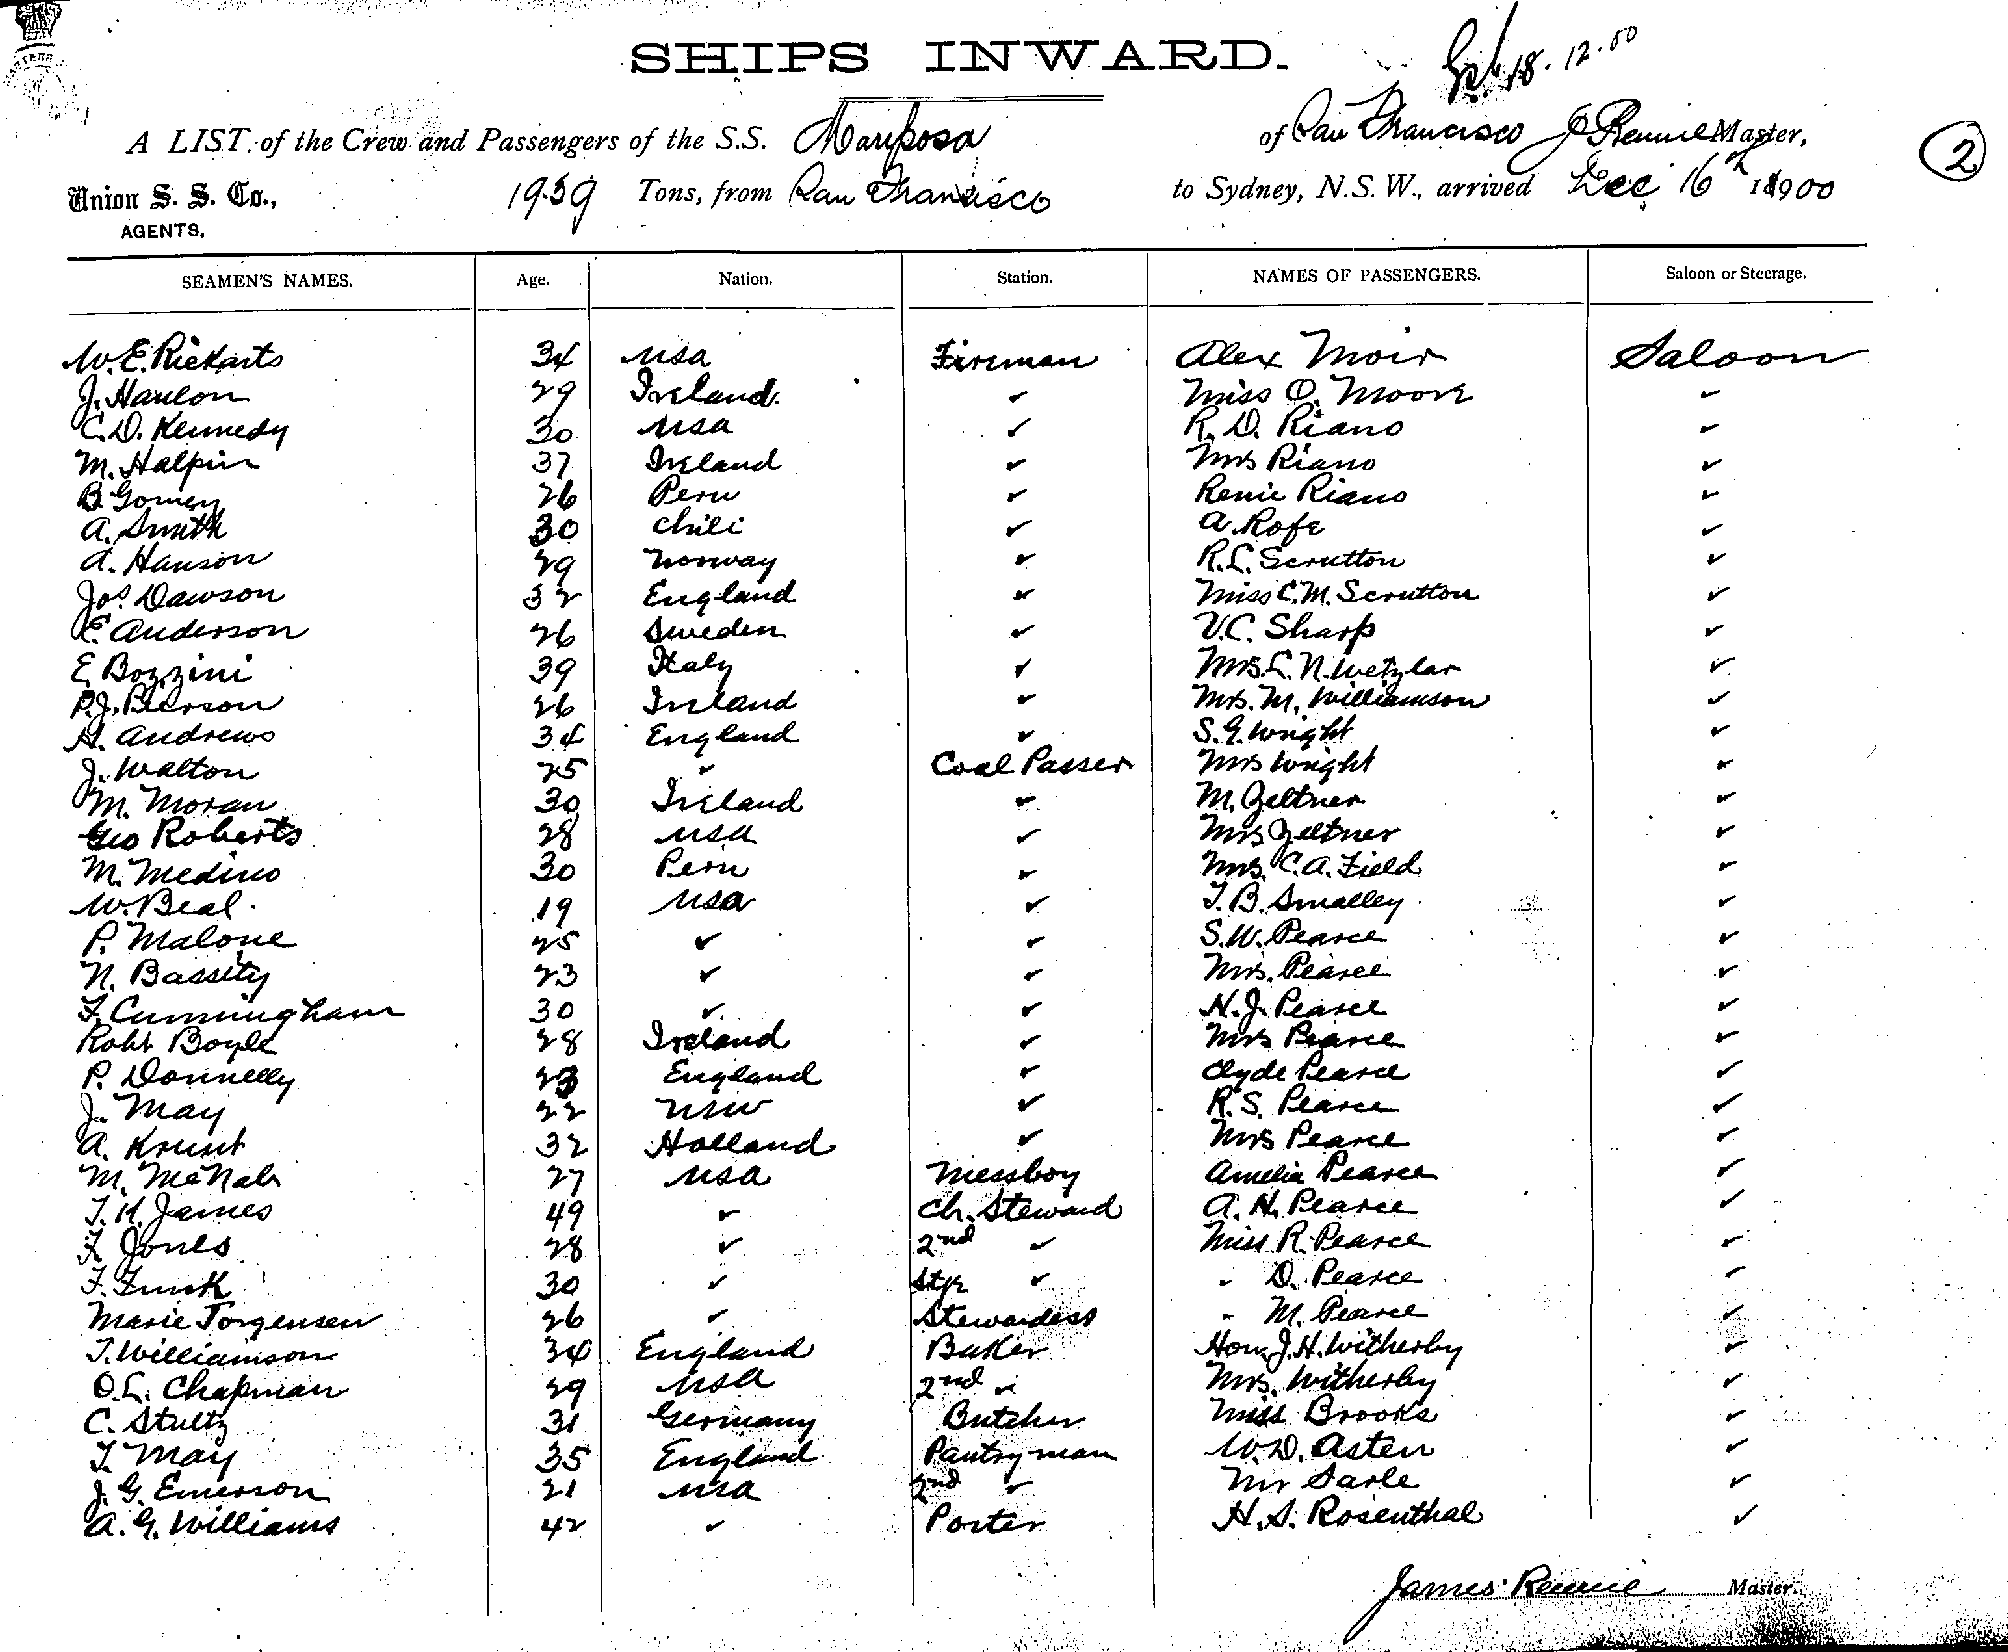 SHIPS INWARD.
18.12.00
A LIST of the Crew and Passengers of the S.S. Mariposa of San Francisco J Rennie Master,
2
Union S. S. Co., 1939 Tons, from San Francisco to Sydney, N.S.W., arrived Dec 16th 1900
AGENTS.
SEAMEN'S NAMES. Age. Nation. Station. NAMES OF PASSENGERS. Saloon or Steerage.
W. E. Rickarts 34 USA Fireman Alex Moir Saloon
J. Hanlon 29 Ireland ✓ Miss O. Moore ✓
C. D. Kennedy 30 USA ✓ R. D. Riano ✓
M. Halpin 37 Ireland ✓ Mrs Riano ✓
B. Gomez 26 Peru ✓ Renie Riano ✓
A. Smith 30 Chili ✓ A. Rofe ✓
A. Hanson 29 Norway ✓ R. L. Scrutton ✓
Jos. Dawson 32 England ✓ Miss C. M. Scrutton ✓
E. Anderson 26 Sweden ✓ V. C. Sharp ✓
E. Bozzini 39 Italy ✓ Mrs. L. N. Wetzlar ✓
P. J. Pierson 26 Ireland ✓ Mrs. M. Williamson ✓
H. Andrews 34 England ✓ S. G. Wright ✓
J. Walton 25 ✓ Coal Passer Mrs Wright ✓
M. Moran 30 Ireland ✓ M. Zeltner ✓
Geo Roberts 28 USA ✓ Mrs Zeltner ✓
M. Medino 30 Peru ✓ Mrs. C. A. Field ✓
W. Beal. 19 USA ✓ T. B. Smalley ✓
P. Malone 25 ✓ ✓ S. W. Pearce ✓
N. Bassity 23 ✓ ✓ Mrs. Pearce ✓
F. Cunningham 30 ✓ ✓ H. J. Pearce ✓
Robt Boyle 28 Ireland ✓ Mrs Pearce ✓
P. Donnelly 23 England ✓ Clyde Pearce ✓
J. May 22 NSW ✓ R. S. Pearce ✓
A. Krunt 32 Holland ✓ Mrs Pearce ✓
M. McNab 27 USA Messboy Amelia Pearce ✓
T. H. James 49 ✓ Ch. Steward A. H. Pearce ✓
F. Jones 28 ✓ 2nd ✓ Miss R. Pearce ✓
F. Funk 30 ✓ Stge ✓ " D. Pearce ✓
Marie Jorgensen 26 ✓ Stewardess " M. Pearce ✓
T. Williamson 34 England Baker Hon. J. H. Witherby ✓
O. L. Chapman 29 USA 2nd ✓ Mrs. Witherby ✓
C. Stultz 31 Germany Butcher Miss Brooks ✓
T. May 35 England Pantryman W. D. Asten ✓
J. G. Emerson 21 USA 2nd ✓ Mr Sarle ✓
A. G. Williams 42 ✓ Porter H. S. Rosenthal ✓
James Rennie Master.